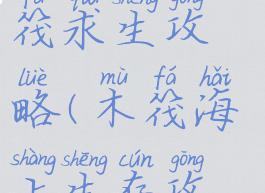 fá qiú shēng gōng
筏求生攻
lüè mù fá hǎi
略(木筏海
shàng shēng cún gōng
上生存攻